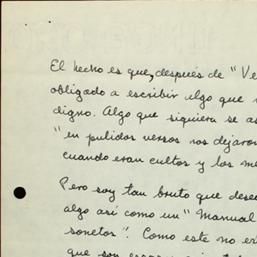 El hecho es que, después de "Ve
obligado a escribir algo que
digno. Algo que siquiera se as
"en pulidos versos nos dejaron
cuando eran cultos y los me
Pero soy tan bruto que dese
algo así como un "Manual
sonetos". Como este no ex
que son